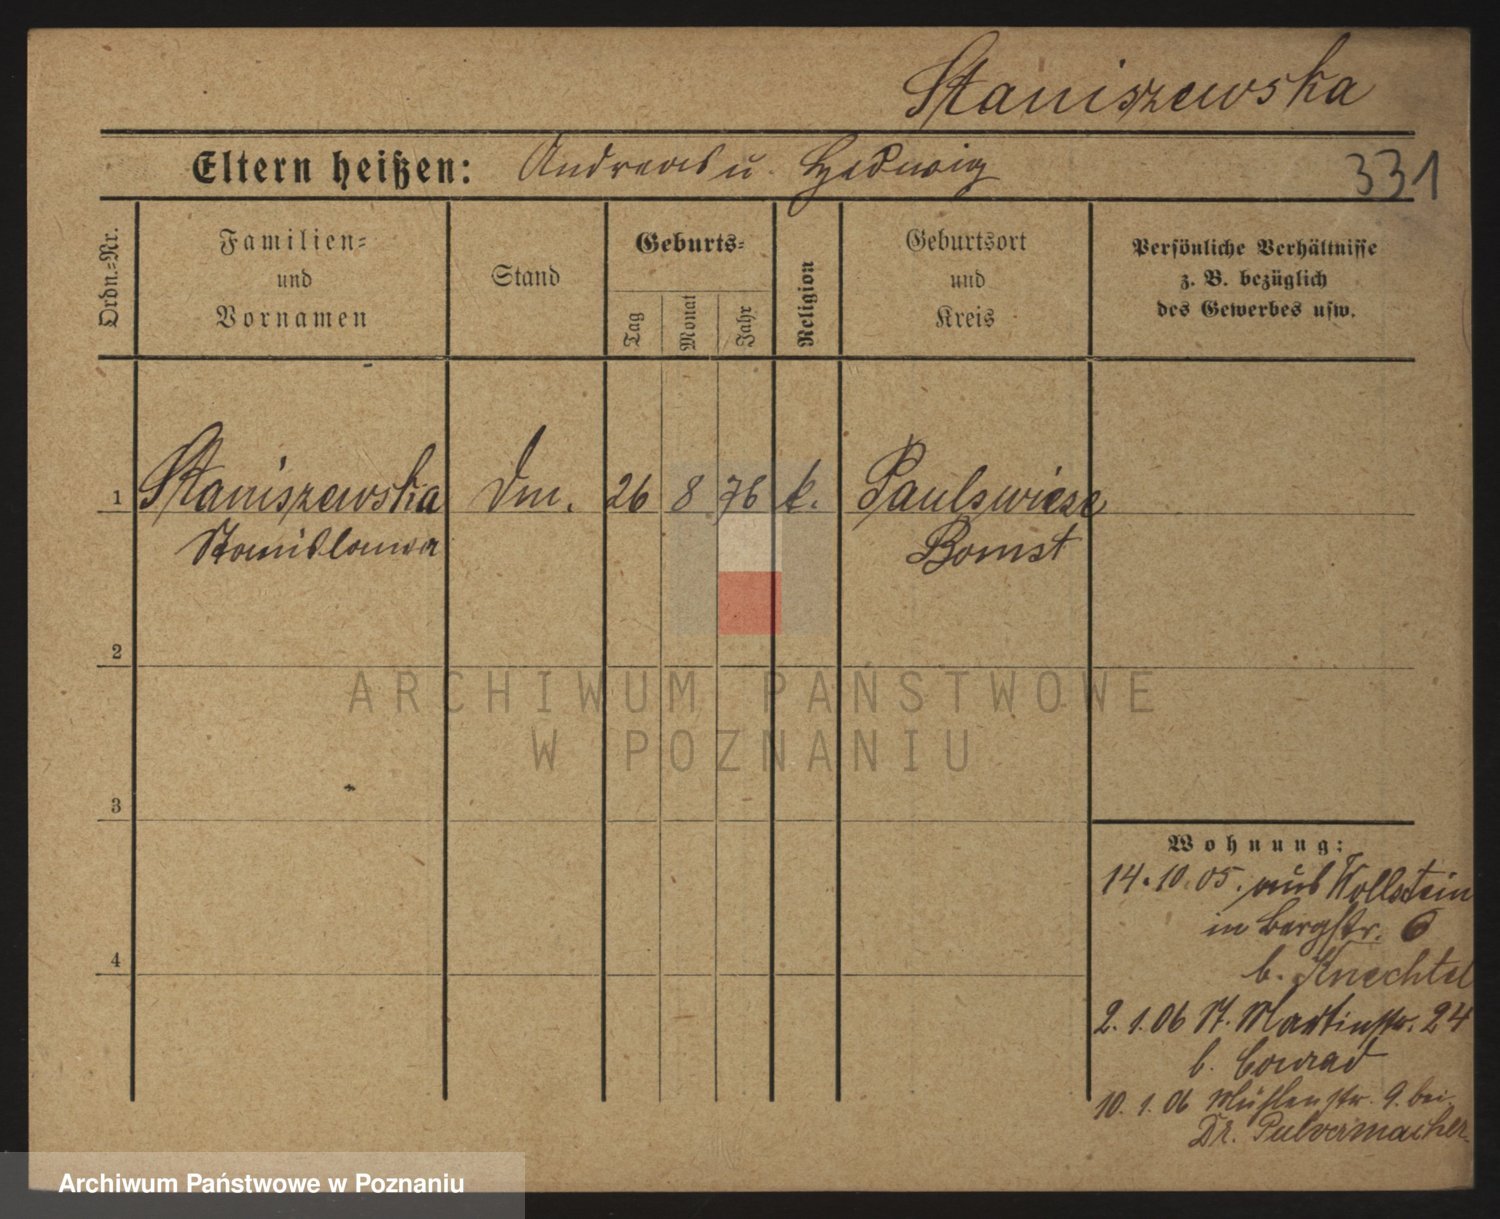 Staniszewska
Eltern heißen: Andreas u. Hedwig
331
Ordn.=Nr.
Familien=
und
Vornamen
Stand
Geburts=
Tag
Monat
Jahr
Religion
Geburtsort
und
Kreis
Persönliche Verhältnisse
z. B. bezüglich
des Gewerbes usw.
1 Staniszewska Dm. 26 8 76 k. Paulswiese
Stanislawa Bomst
2
ARCHIWUM PAŃSTWOWE
W POZNANIU
3
Wohnung:
14.10.05. aus Wollstein
in Bergstr. 6
b. Knechtel
4
2.1.06 St. Martinstr. 24
b. Conrad
10.1.06 Mühlenstr. 9. bei
Dr. Pulvermacher
Archiwum Państwowe w Poznaniu